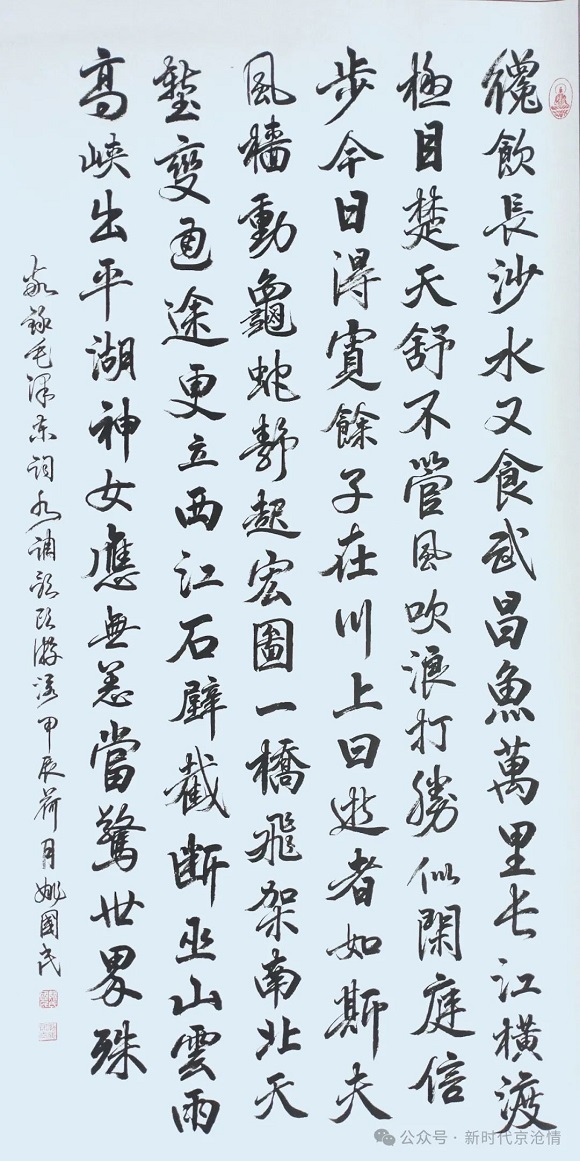 纔飲長沙水又食武昌魚萬里长江橫渡
極目楚天舒不管風吹浪打勝似閑庭信
步今日得寬餘子在川上曰逝者如斯夫
風檣動龜蛇靜起宏圖一橋飛架南北天
塹變通途更立西江石壁截断巫山雲雨
高峽出平湖神女應無恙當驚世界殊
敬録毛泽东詞水调歌头游泳甲辰荷月姚國民
公众号 · 新时代京沧情